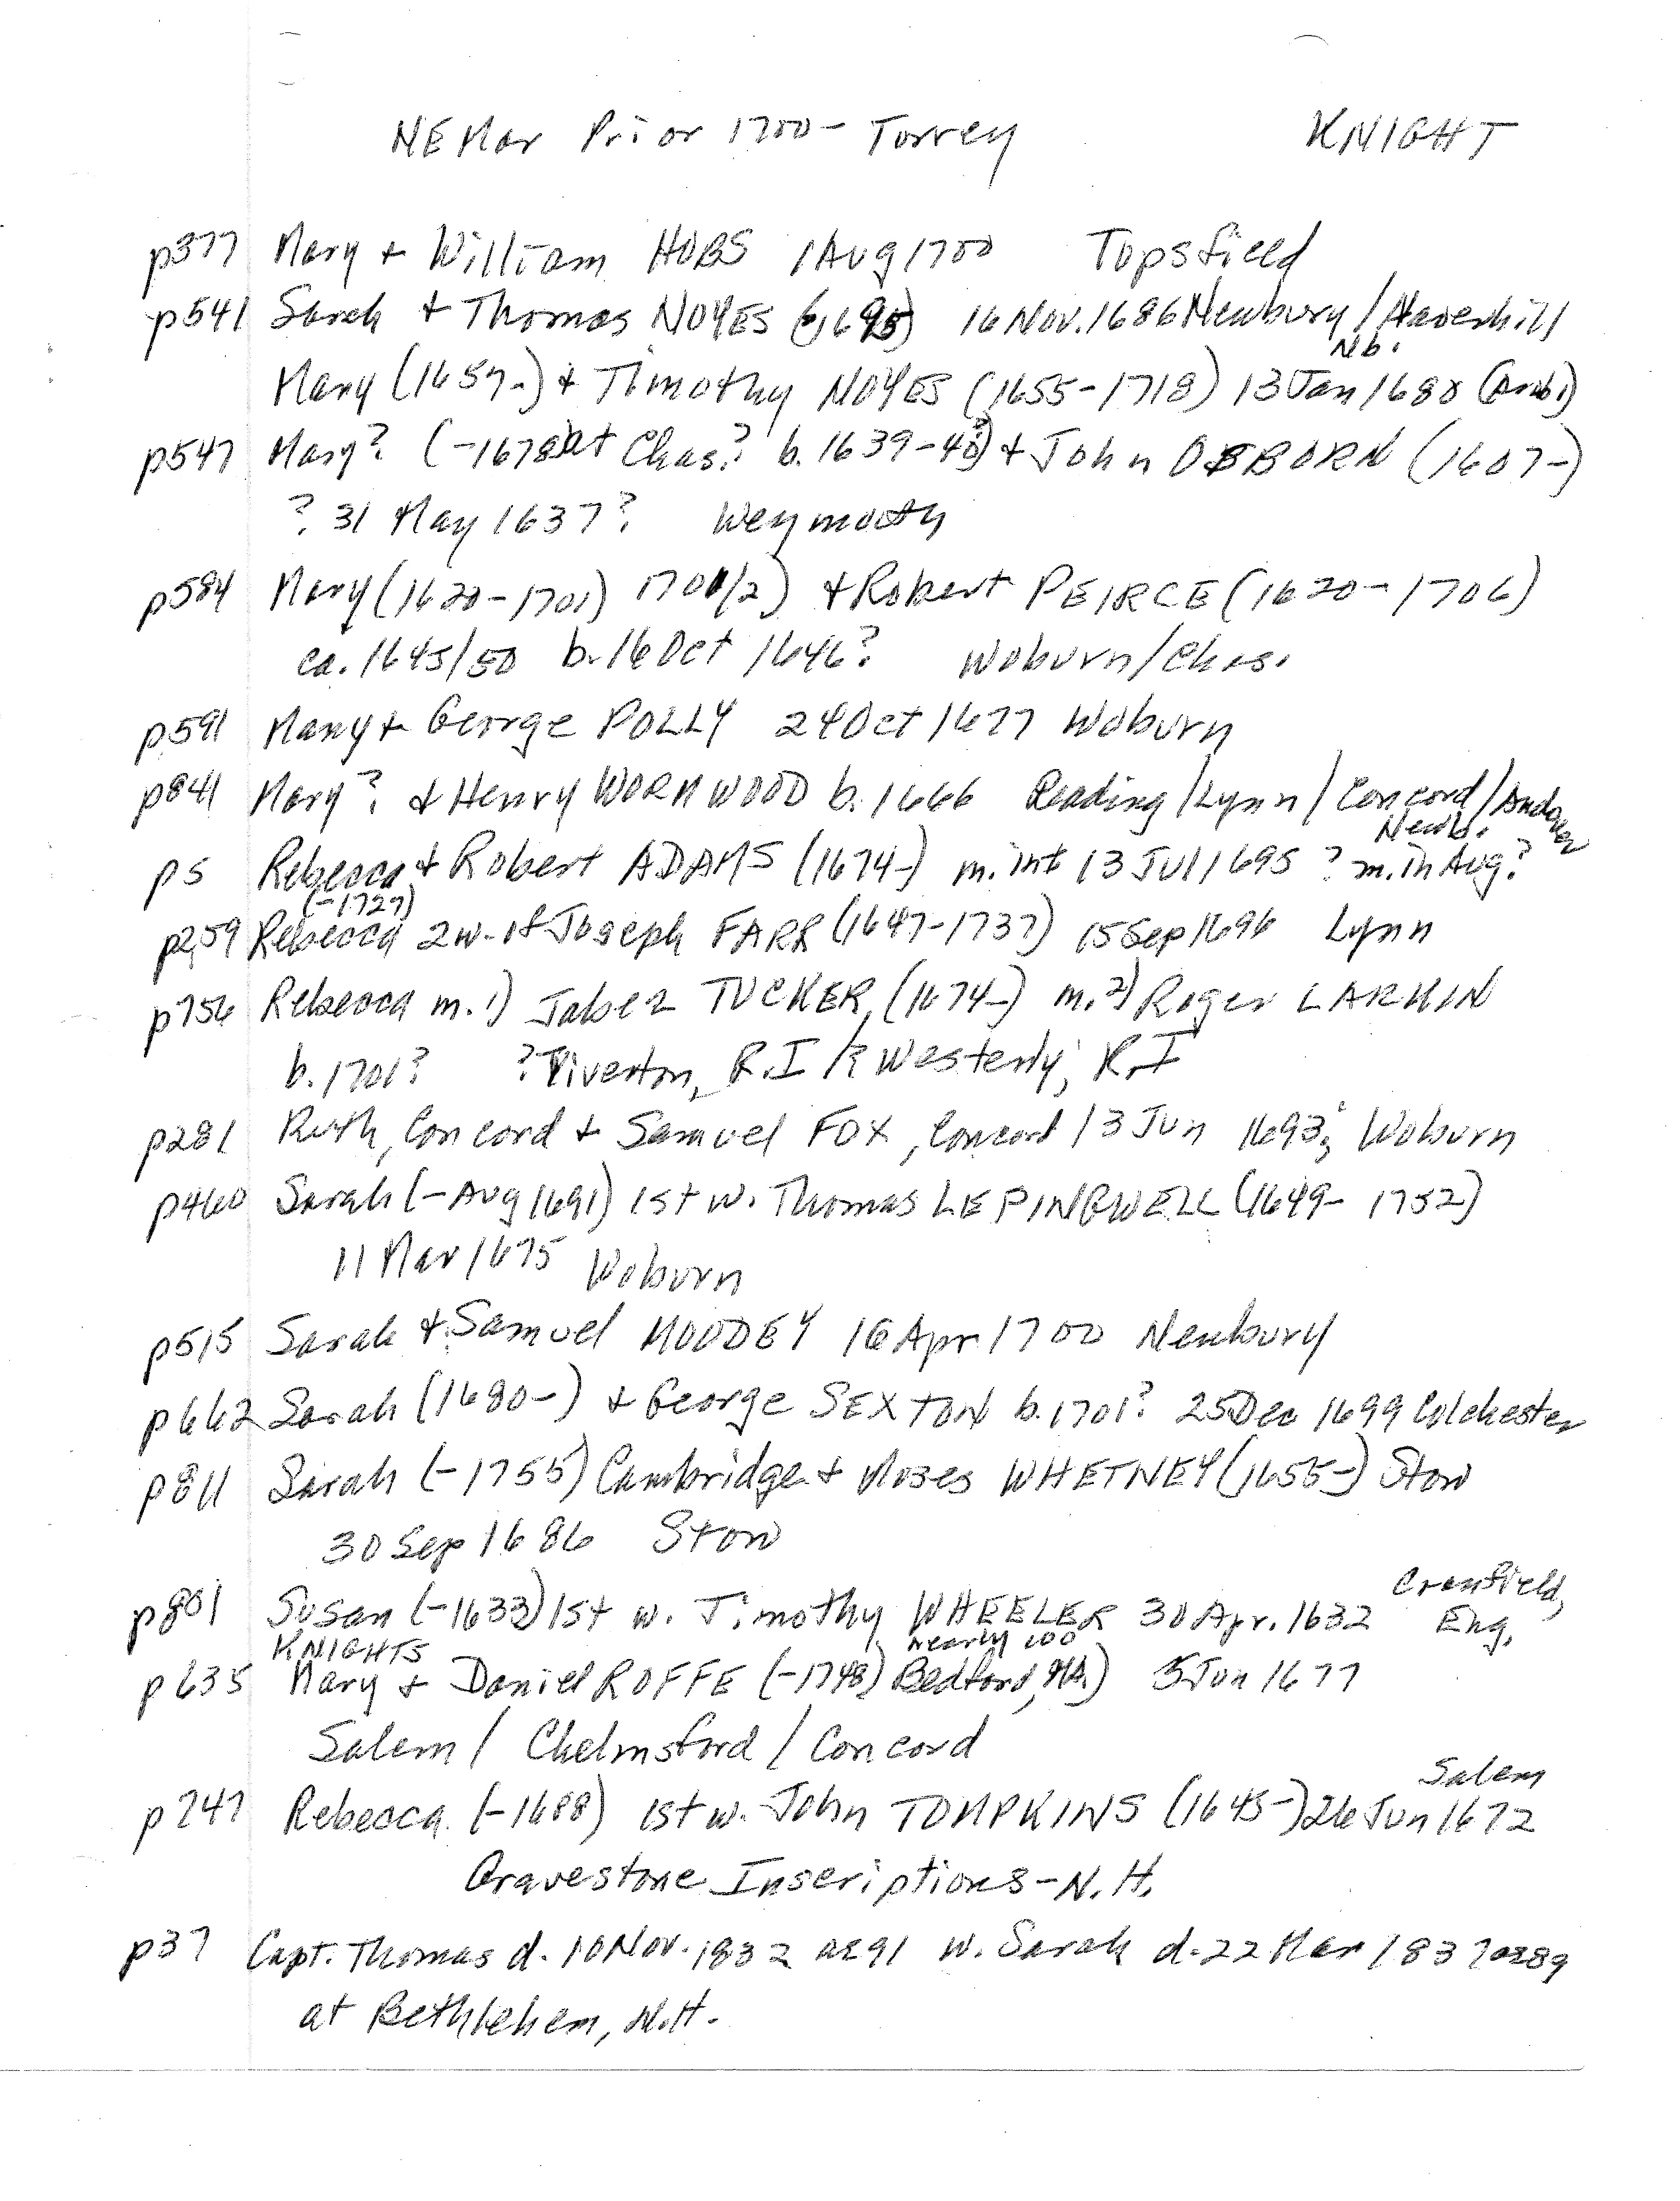 NE Mar Prior 1700 - Torrey KNIGHT
p377 Mary + William HOBS 1 Aug 1700 Topsfield
p541 Sarah + Thomas NOYES (-1695) 16 Nov. 1686 Newbury / Haverhill
Nb.
Mary (1657-) + Timothy NOYES (1655-1718) 13 Jan 1680
p547 Mary? (-1678 at Chas.? b. 1639-40?) + John OSBORN (1607-)
? 31 May 1637? Weymouth
p584 Mary (1620-1701) 1701/2) + Robert PEIRCE (1620-1706)
ca. 1645/50 b. 16 Oct 1646? Woburn/Chas.
p591 Mary + George POLLY 24 Oct 1677 Woburn
p841 Mary? + Henry WORMWOOD b. 1666 Reading / Lynn / Concord / Andover
Newb.
p5 Rebecca + Robert ADAMS (1674-) m. int 13 Jul 1695 ? m. in Aug?
(-1727)
p259 Rebecca 2w. of Joseph FARR (1647-1737) 15 Sep 1696 Lynn
p756 Rebecca m. 1) Jabez TUCKER, (1674-) m. 2) Roger LARKIN
b. 1701? ? Tiverton, R.I / ? Westerly, R.I
p281 Ruth, Concord + Samuel FOX, Concord 13 Jun 1693; Woburn
p460 Sarah (- Aug 1691) 1st w. Thomas LEPINGWELL (1649- 1752)
11 Mar 1675 Woburn
p515 Sarah + Samuel MOODEY 16 Apr 1700 Newbury
p662 Sarah (1680-) + George SEXTON b. 1701? 25 Dec 1699 Colchester
p811 Sarah (-1755) Cambridge + Moses WHETNEY (1655-) Stow
30 Sep 1686 Stow
p801 Susan (-1633) 1st w. Timothy WHEELER 30 Apr. 1632 Cranfield, Eng.
KNIGHTS nearly 100
p635 Mary + Daniel ROFFE (-1748) Bedford, MA) 5 Jun 1677
Salem / Chelmsford / Concord
Salem
p747 Rebecca (-1688) 1st w. John TOMPKINS (1645-) 26 Jun 1672
Gravestone Inscriptions - N.H.
p37 Capt. Thomas d. 10 Nov. 1832 ae 91 w. Sarah d. 22 Mar 1837 ae 89
at Bethlehem, N.H.